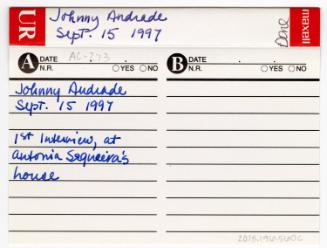 Johnny Andrade
Sept. 15 1997
UR
maxell
Done
A DATE
N.R. AC-273 YES NO
B DATE
N.R. YES NO
Johnny Andrade
Sept. 15 1997
1st Interview, at
Antonia Sequeira's
house